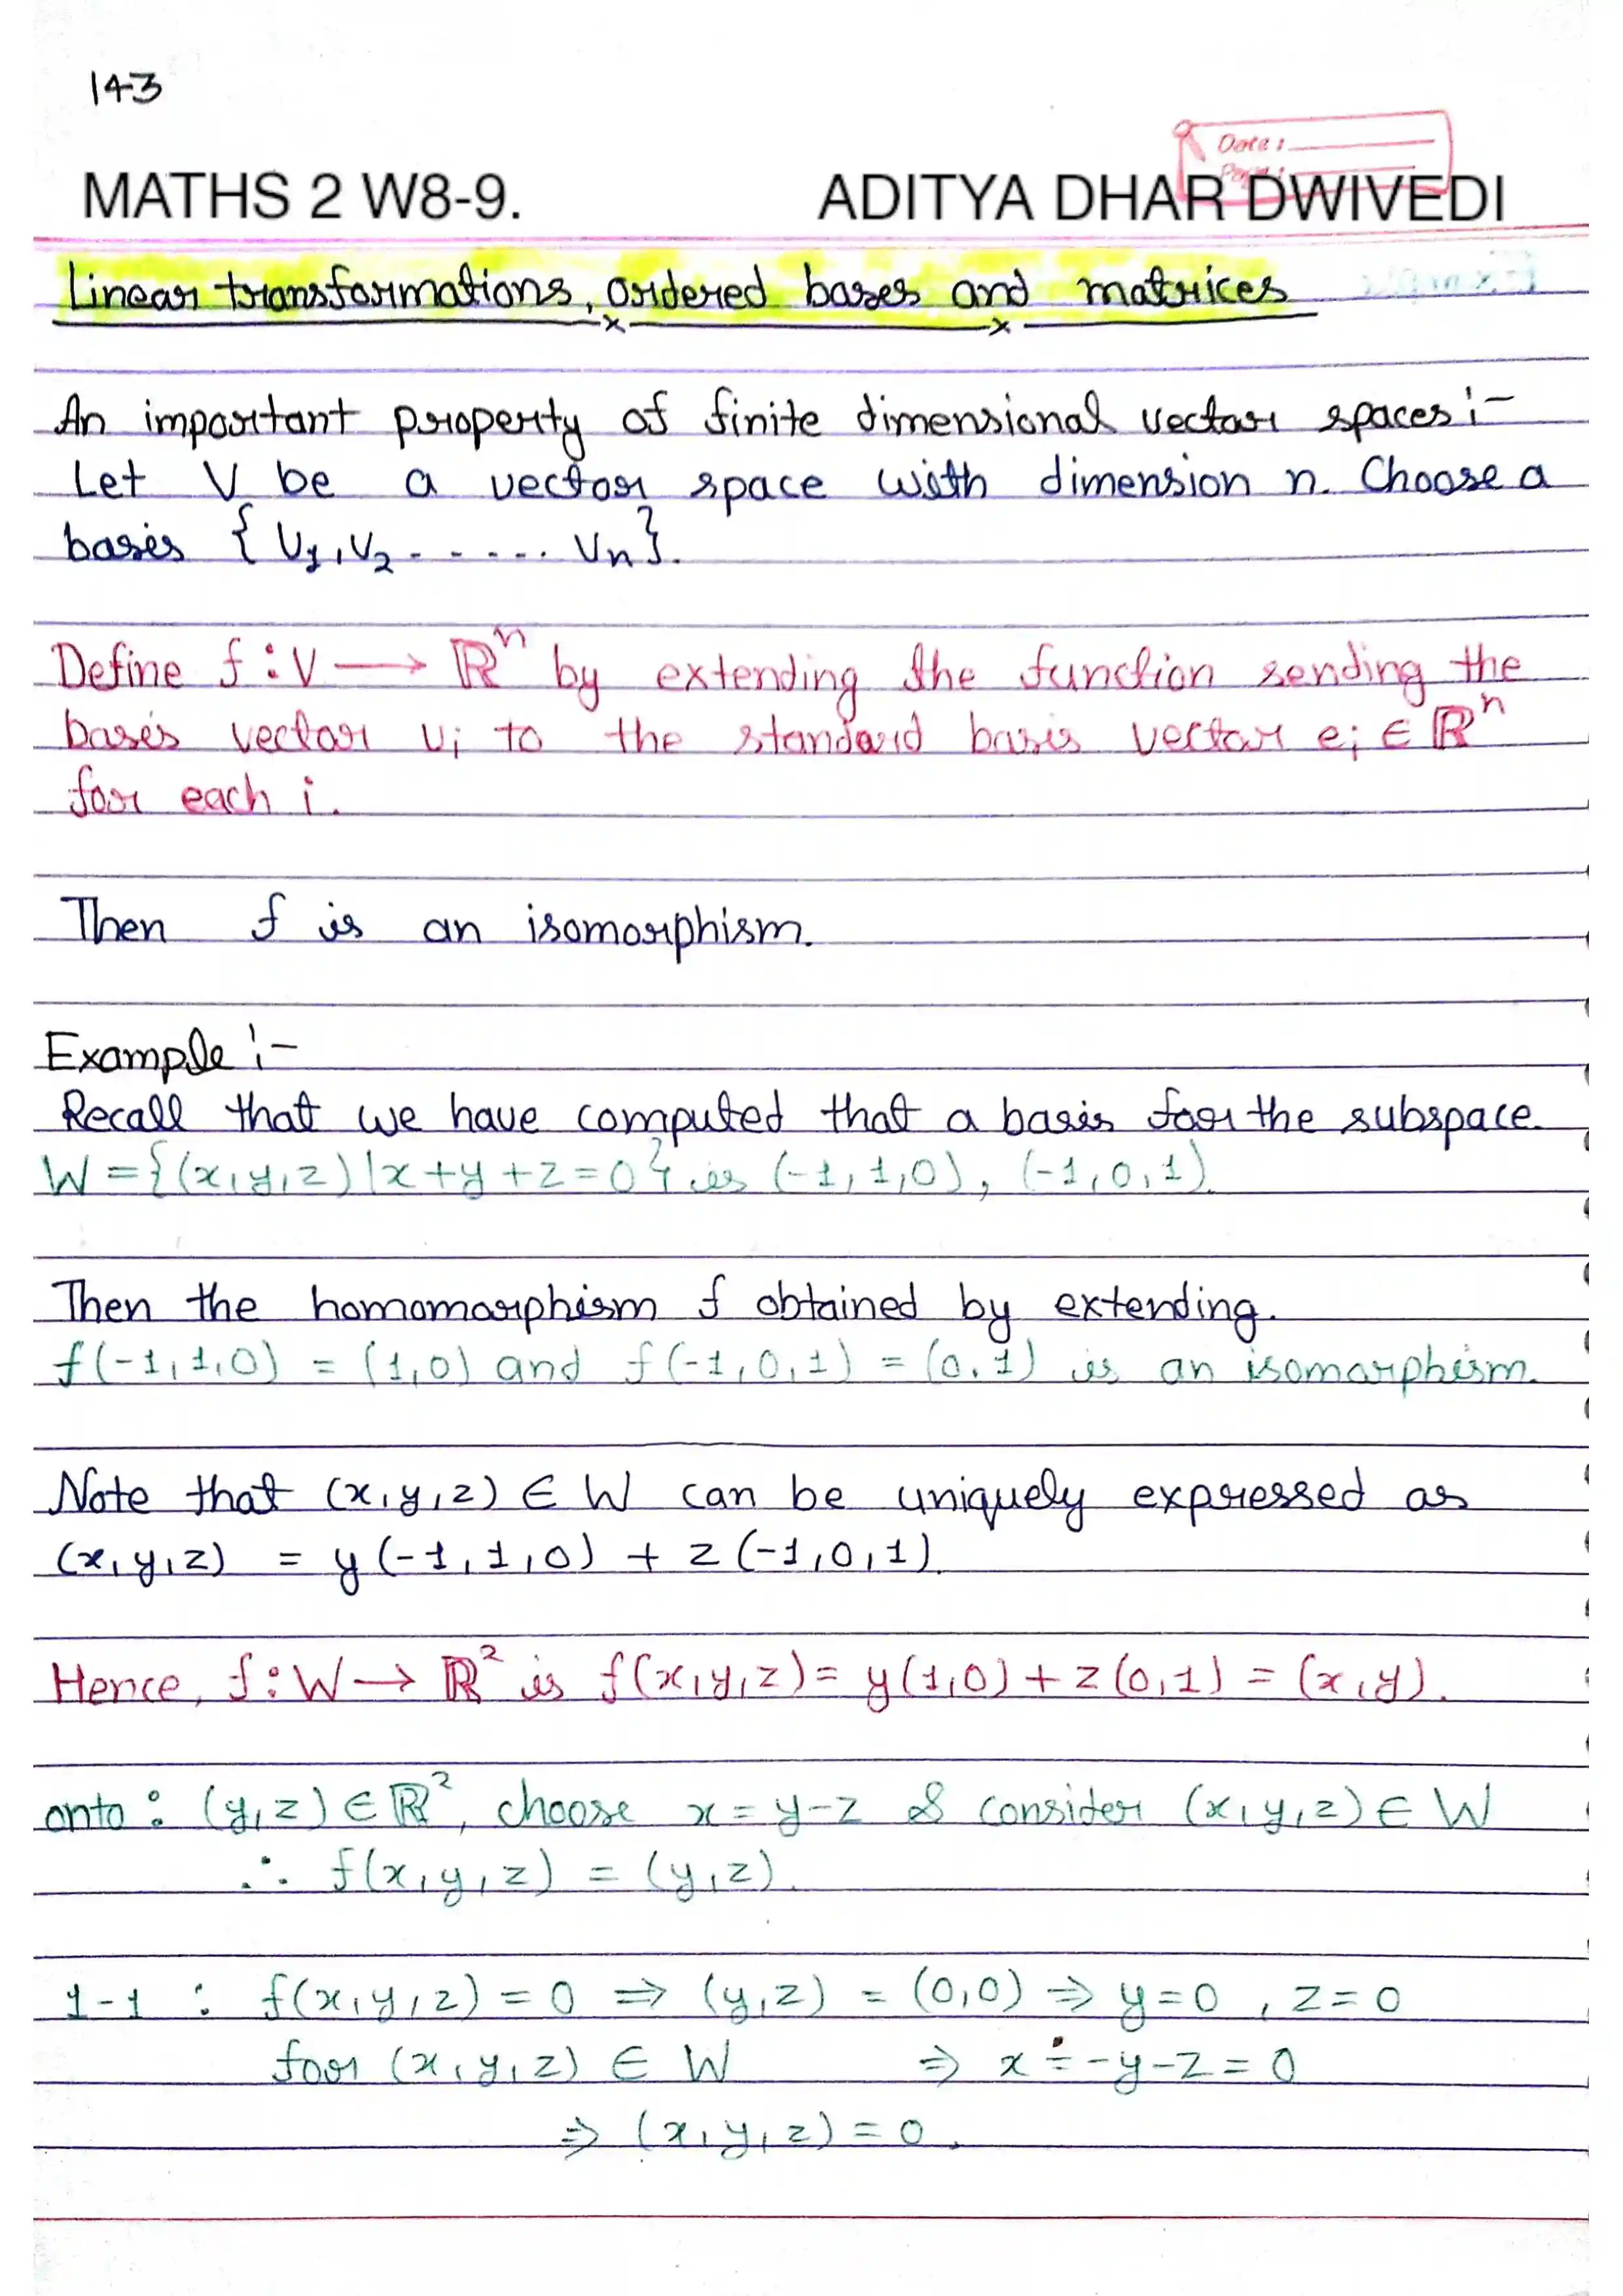 143
Date:
MATHS 2 W8-9. ADITYA DHAR DWIVEDI
Linear transformations, ordered bases and matrices
An important property of finite dimensional vector spaces :-
Let V be a vector space with dimension n. Choose a
basis { V1, V2 - - - - - Vn}.
Define f : V → ℝⁿ by extending the function sending the
basis vector vi to the standard basis vector ei ∈ ℝⁿ
for each i.
Then f is an isomorphism.
Example :-
Recall that we have computed that a basis for the subspace.
W = {(x,y,z) | x+y+z=0} is (-1,1,0), (-1,0,1).
Then the homomorphism f obtained by extending.
f(-1,1,0) = (1,0) and f(-1,0,1) = (0,1) is an isomorphism.
Note that (x,y,z) ∈ W can be uniquely expressed as
(x,y,z) = y(-1,1,0) + z(-1,0,1).
Hence, f : W → ℝ² is f(x,y,z) = y(1,0) + z(0,1) = (x,y).
onto : (y,z) ∈ ℝ², choose x = y-z & consider (x,y,z) ∈ W
∴ f(x,y,z) = (y,z).
1-1 : f(x,y,z) = 0 ⇒ (y,z) = (0,0) ⇒ y=0, z=0
for (x,y,z) ∈ W ⇒ x = -y-z = 0
⇒ (x,y,z) = 0.